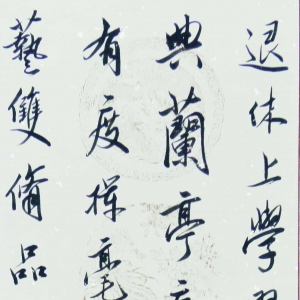 退休上學
典蘭亭
有度揮毫
藝雙脩品